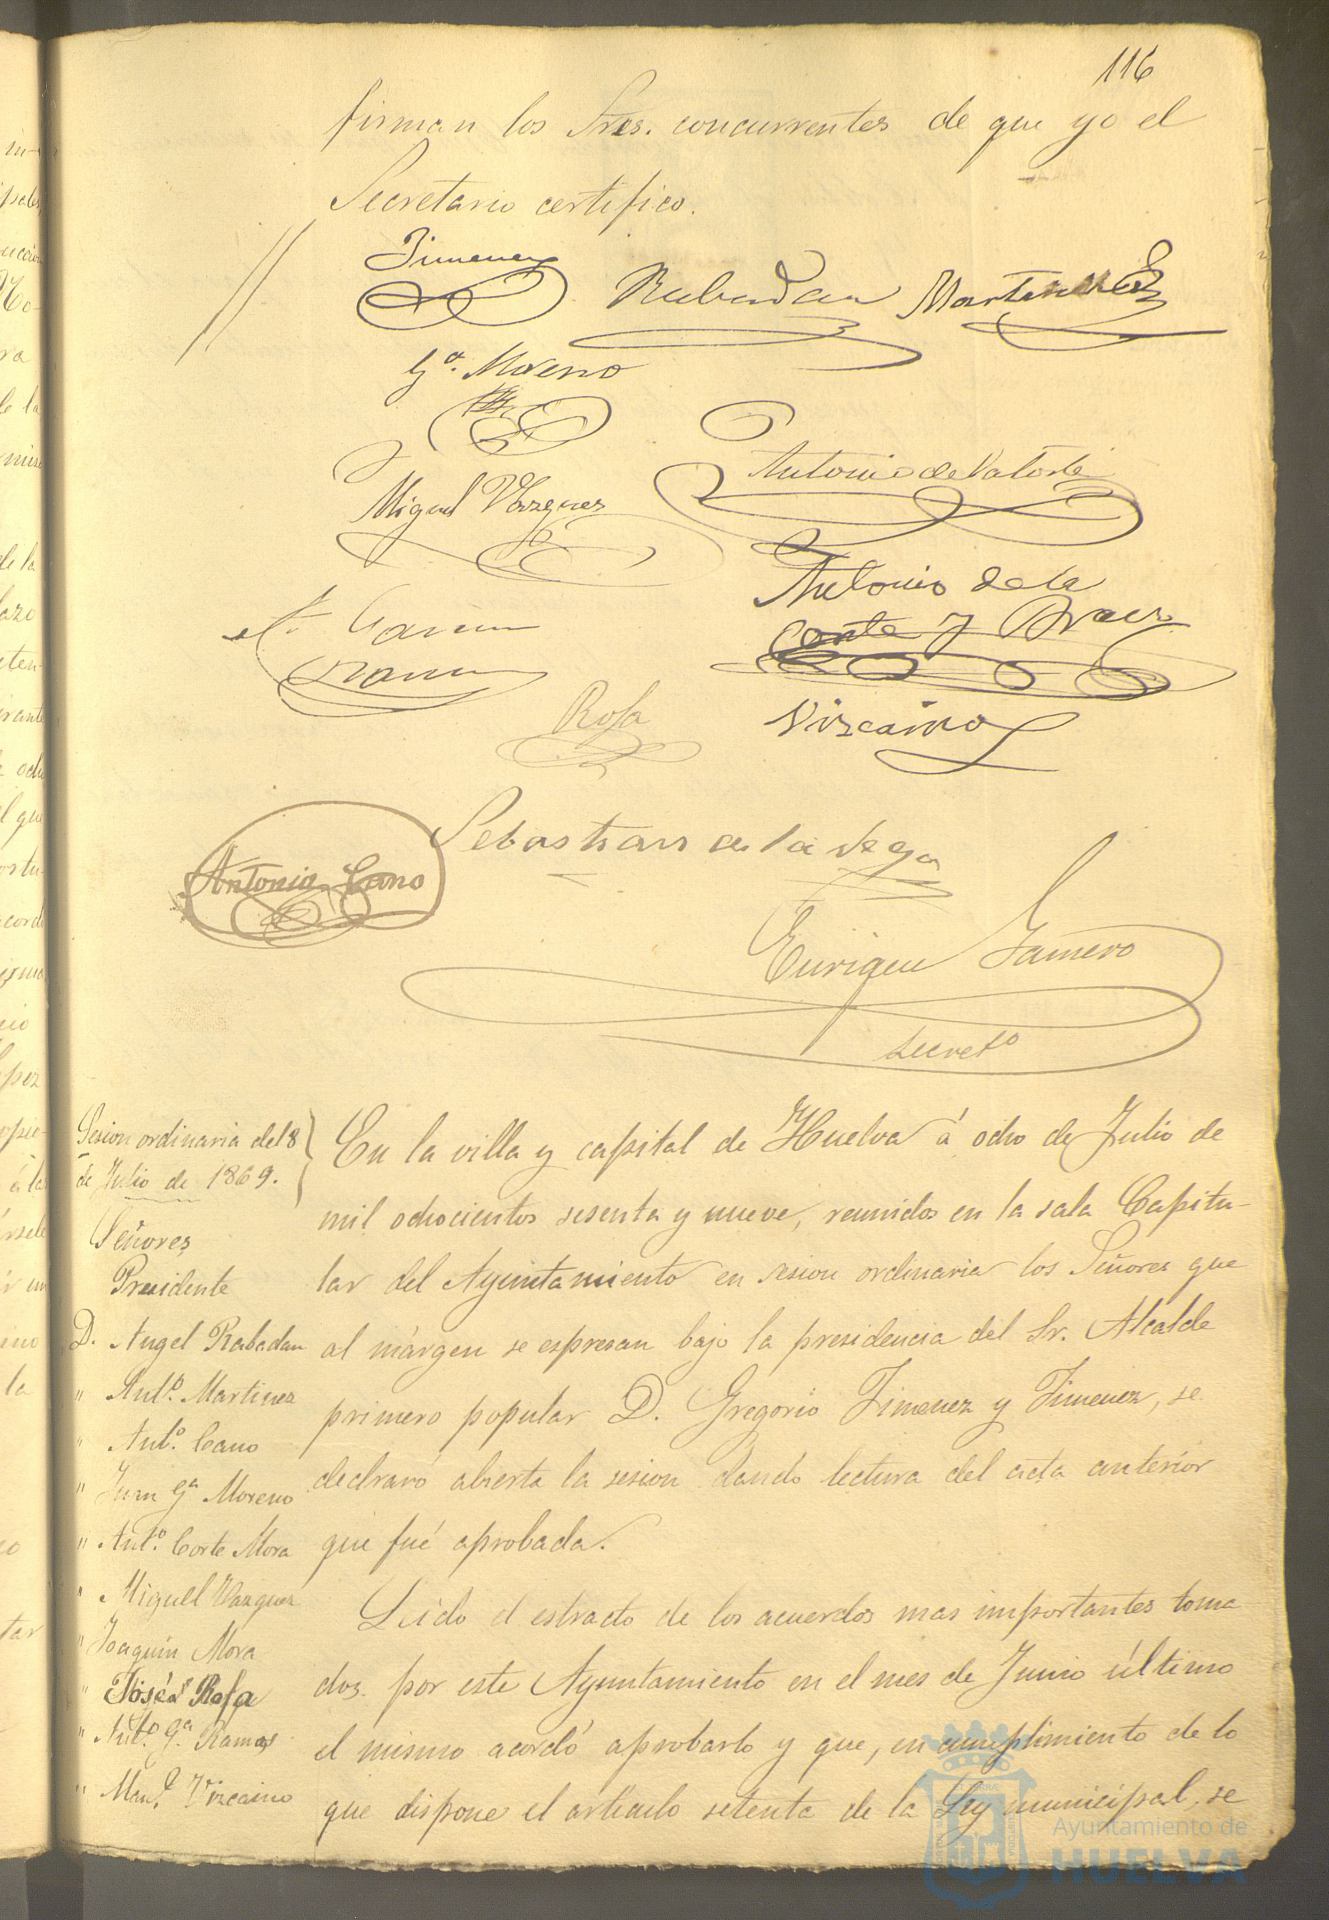 116
firman los Sres. concurrentes de que yo el
Secretario certifico.
Jimenez
Rabadan Martinez
Ga. Moreno
Antonio de
Miguel Vazquez
Antonio de la
Corte y
A. Garcia
Ramos
Rofa
Vizcaino
Sebastian de la Vega
Antonio Cano
Enrique Gamero
Secreto
Sesion ordinaria del 8
de Julio de 1869.
Señores
Presidente
D. Angel Rabadan
" Anto. Martinez
" Anto. Cano
" Juan Ga Moreno
" Anto. Corte Mora
" Miguel Vazquez
" Joaquin Mora
" José Rofa
" Anto. Ga. Ramos
" Manl. Vizcaino
En la villa y capital de Huelva á ocho de Julio de
mil ochocientos sesenta y nueve, reunidos en la sala Capitu-
lar del Ayuntamiento en sesion ordinaria los Señores que
al márgen se espresan bajo la presidencia del Sr. Alcalde
primero popular D. Gregorio Jimenez y Jimenez, se
declraró abierta la sesion dando lectura del acta anterior
que fué aprobada.
Leido el estracto de los acuerdos mas importantes toma
dos por este Ayuntamiento en el mes de Junio último
el mismo acordó aprobarlo y que, en cumplimiento de lo
que dispone el artículo setenta de la Ley municipal, se
Ayuntamiento de
HUELVA